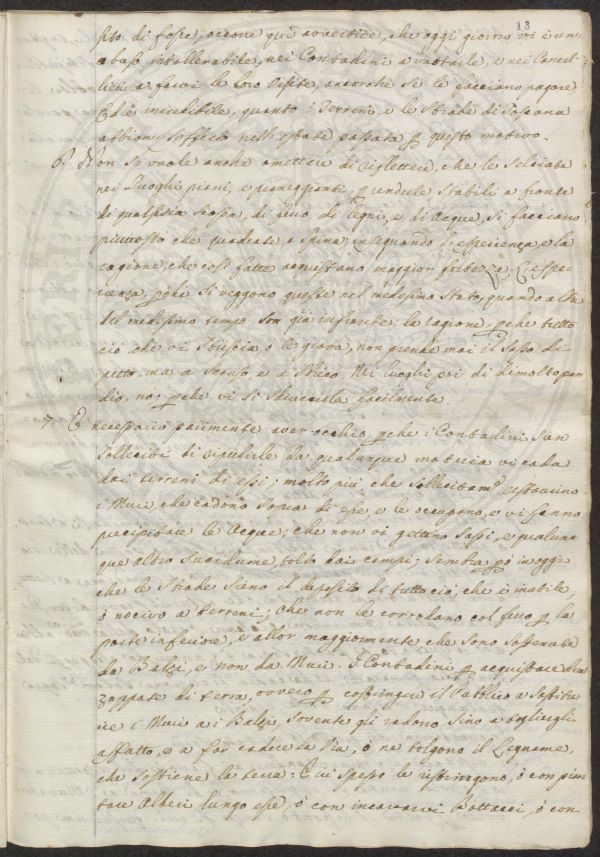 13
sto di fosse; occorre qui avvertire, che oggi giorno vi è un
abuso intollerabile, nei Contadini a votarle, e nei Cancel-
lieri a farvi le loro Visite, ancorchè se le facciano pagare
Ed è incredibile, quanto i Terreni, e le Strade di Toscana
abbiano sofferto nell'estate passata p questo motivo.
6. Non si vuole anche omettere di riflettere, che le Selciate
nei Luoghi piani, e pianeggianti, p renderle stabili a fronte
di qualsisia Scossa, di peso di Legni, e di Acque, si facciano
piuttosto che quadrate, a spina, insegnando l'esperienza, e la
ragione, che così fatte acquistano maggior fortezza. L'espe-
rienza, pchè si veggono queste nel medesimo stato, quando altre
del medesimo tempo son già infrante; la ragione, pche tutto
ciò, che vi striscia o le grava, non prende mai il Sasso di
petto, ma a a Nei luoghi poi di dimolto pen
dio, no; pche vi si sdrucciola facilmente.
7. È necessario parimente aver occhio, pche i Contadini sian
solleciti di ripulirle da qualunque materia vi cada
dai terreni di essi; molto più che sollecitam.e restaurino
i Muri, che cadono sopra di esse, e le occupano, e vi fanno
precipitare le Acque; che non vi gettino Sassi, e qualun-
que altro sucidume tolto dai campi; sembra in oggi
che le Strade sieno il deposito di tutto ciò, che è inutile,
ò nocivo a Terreni; che non le corrodano col p la
parte inferiore, e allor maggiormente che sono sostenute
da Balzi, e non da Muri. I Contadini p acquistare due
zappate di terra, ovvero p costringere il Pubblico a sostitu-
ire i Muri a i Balzi, sovente gli radono sino a toglierli
affatto, e a far cadere la Via, ò ne tolgono il Legname,
che sostiene la terra: E vi spesso le ristringono, ò con pian
tare Alberi lungo esse, ò con incavarvi Bottacci, ò con